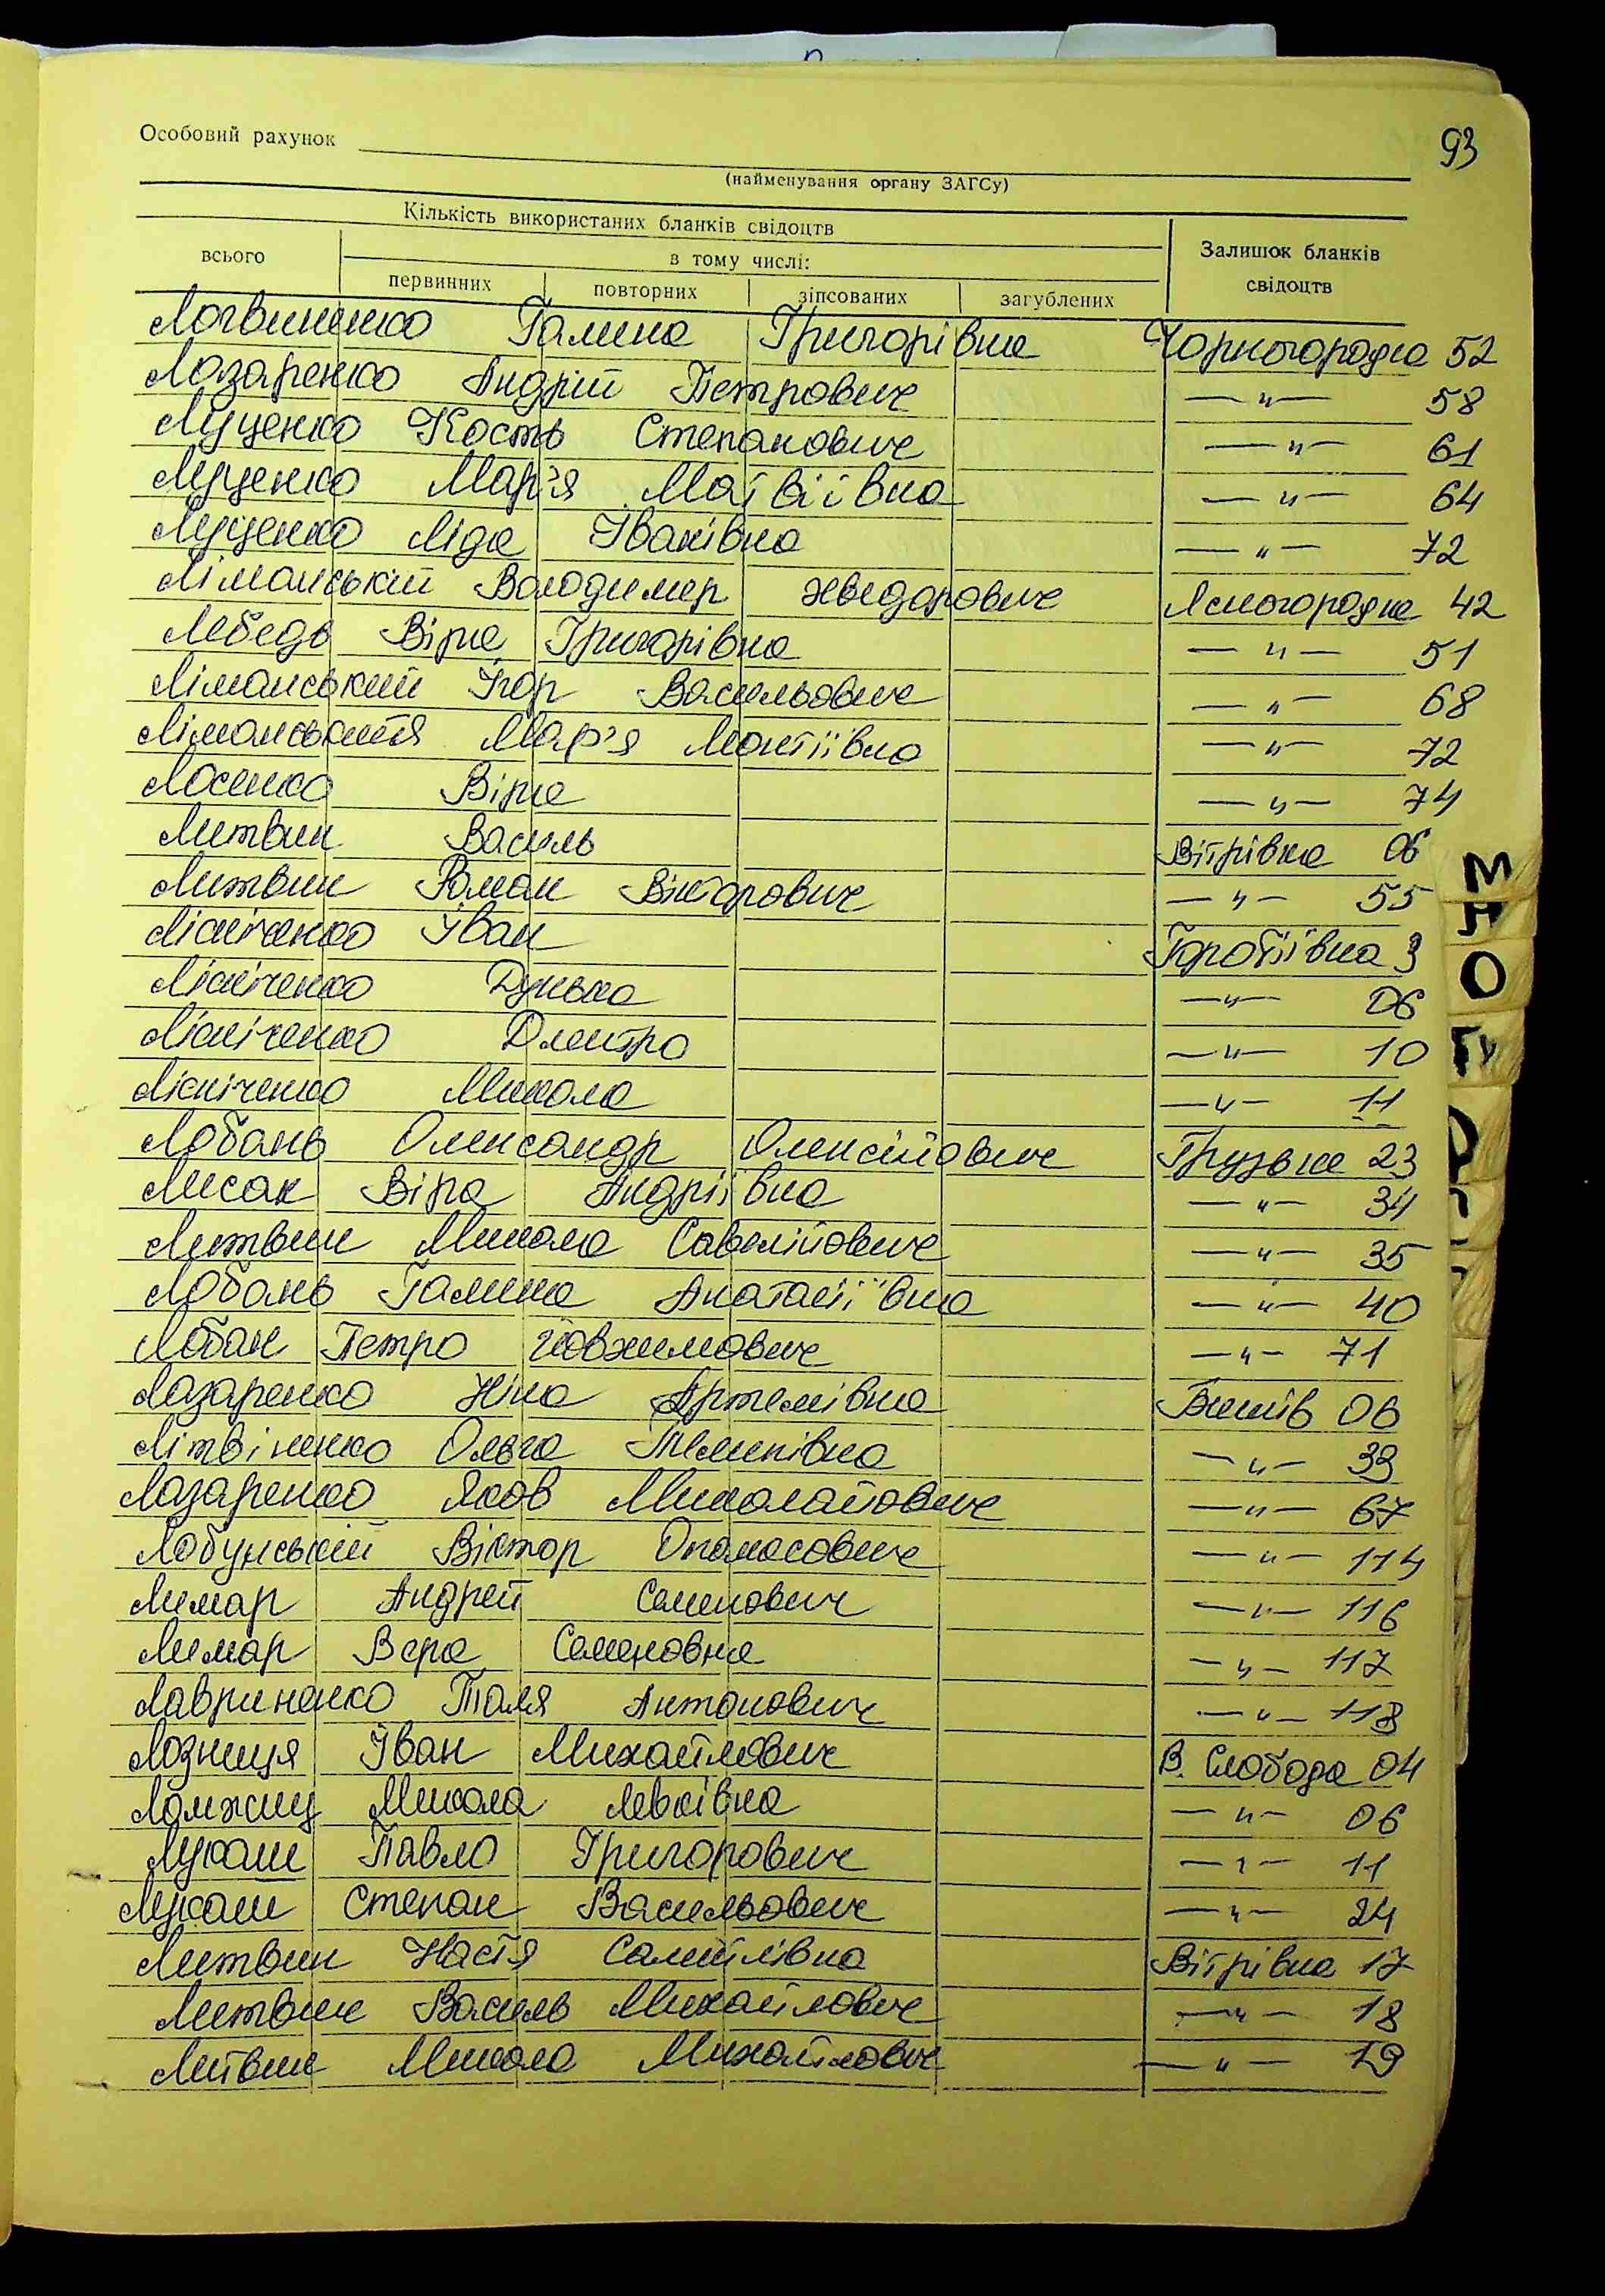 93
Особовий рахунок
(найменування органу ЗАГСу)
Кількість використаних бланків свідоцтв
Залишок бланків свідоцтв
всього
в тому числі:
первинних повторних зіпсованих загублених
Логвиненко Галина Григорівна Чорногородка 52
Лазаренко Андрій Петрович —〃— 58
Луценко Кость Степанович —〃— 61
Луценко Мар'я Матвіївна —〃— 64
Луценко Ліда Іванівна —〃— 72
Ліманський Володимер Хведорович Ясногородка 42
Лебедь Віра Григорівна —〃— 51
Ліманський Ігор Васильович —〃— 68
Мар'я —〃— 72
Лосенко Віра —〃— 74
Литвин Василь Вітрівка 06
Литвин Роман Вікторович —〃— 55
Лісніченко Іван 3
Лісніченко Дунька —〃— 06
Лісніченко Дмитро —〃— 10
Лісніченко Микола —〃— 11
Лобань Олександр Олексійович Грузьке 23
Лисак Віра Андріївна —〃— 34
Литвин Микола Савелійович —〃— 35
Лобань Галина —〃— 40
Лобан Петро Йовхимович —〃— 71
Лазаренко Ніна Артемівна 06
Літвіненко Ольга —〃— 33
Лазаренко Яков Миколайович —〃— 67
Лобунський Віктор Опанасович —〃— 114
Лимар Андрей Семенович —〃— 116
Лимар Вера Семеновна —〃— 117
Лавриненко Толя Антонович —〃— 118
Лозниця Іван Михайлович В. Слобода 04
Микола Левківна —〃— 06
Лукаш Павло Григорович —〃— 11
Лукаш Степан Васильович —〃— 24
Литвин Настя Самійлівна Вітрівка 17
Литвин Василь Михайлович —〃— 18
Литвин Микола Михайлович —〃— 19
М
Н
О